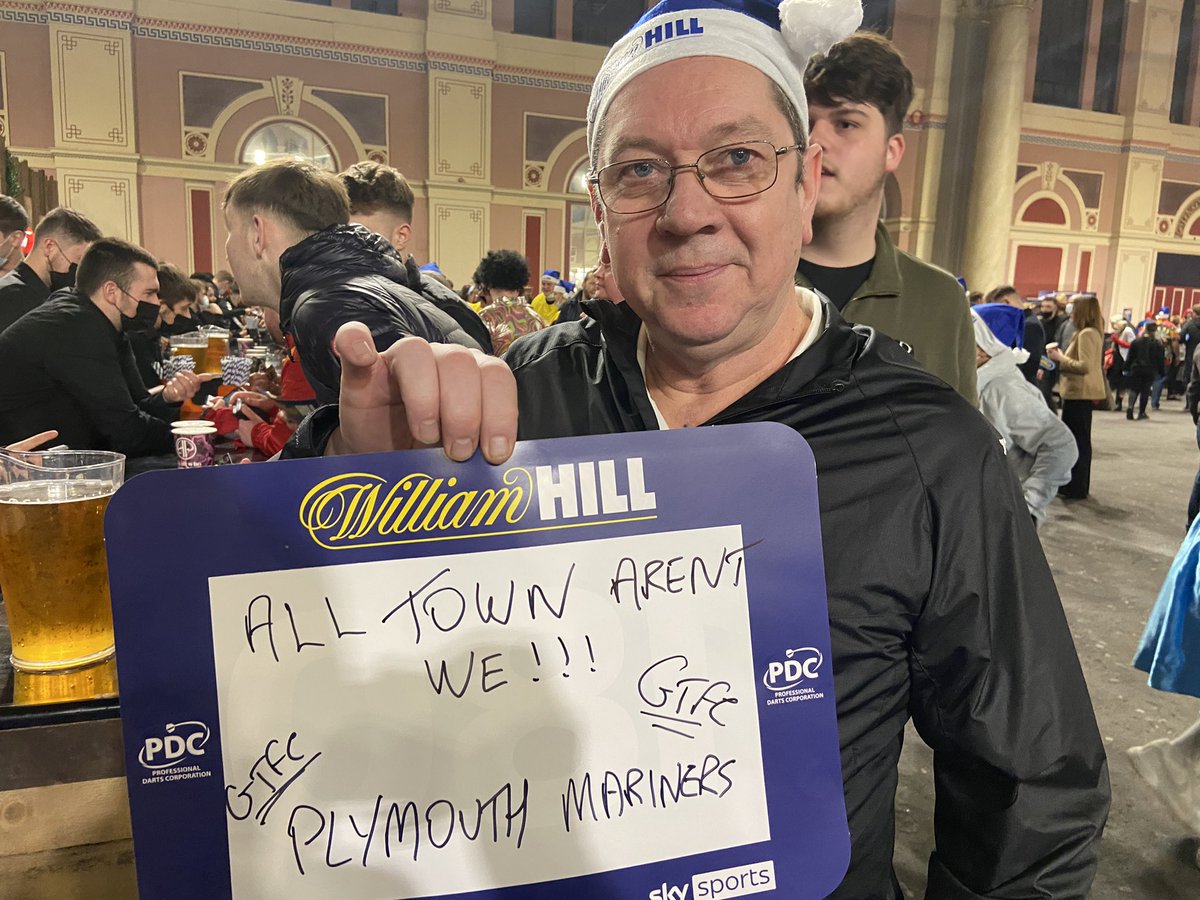 William HILL
William HILL
ALL TOWN ARENT
WE!!!
GTFC
GTFC
PLYMOUTH MARINERS
PDC
PROFESSIONAL
DARTS CORPORATION
PDC
PROFESSIONAL
DARTS CORPORATION
sky sports